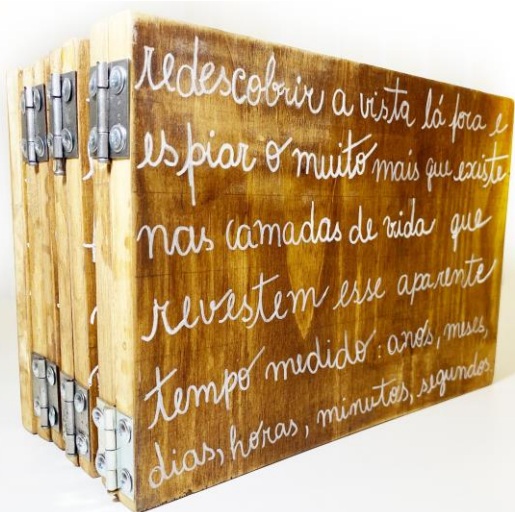 redescobrir a vista lá fora e
espiar o muito mais que existe
nas camadas de vida que
revestem esse aparente
tempo medido: anos, meses,
dias, horas, minutos, segundos.